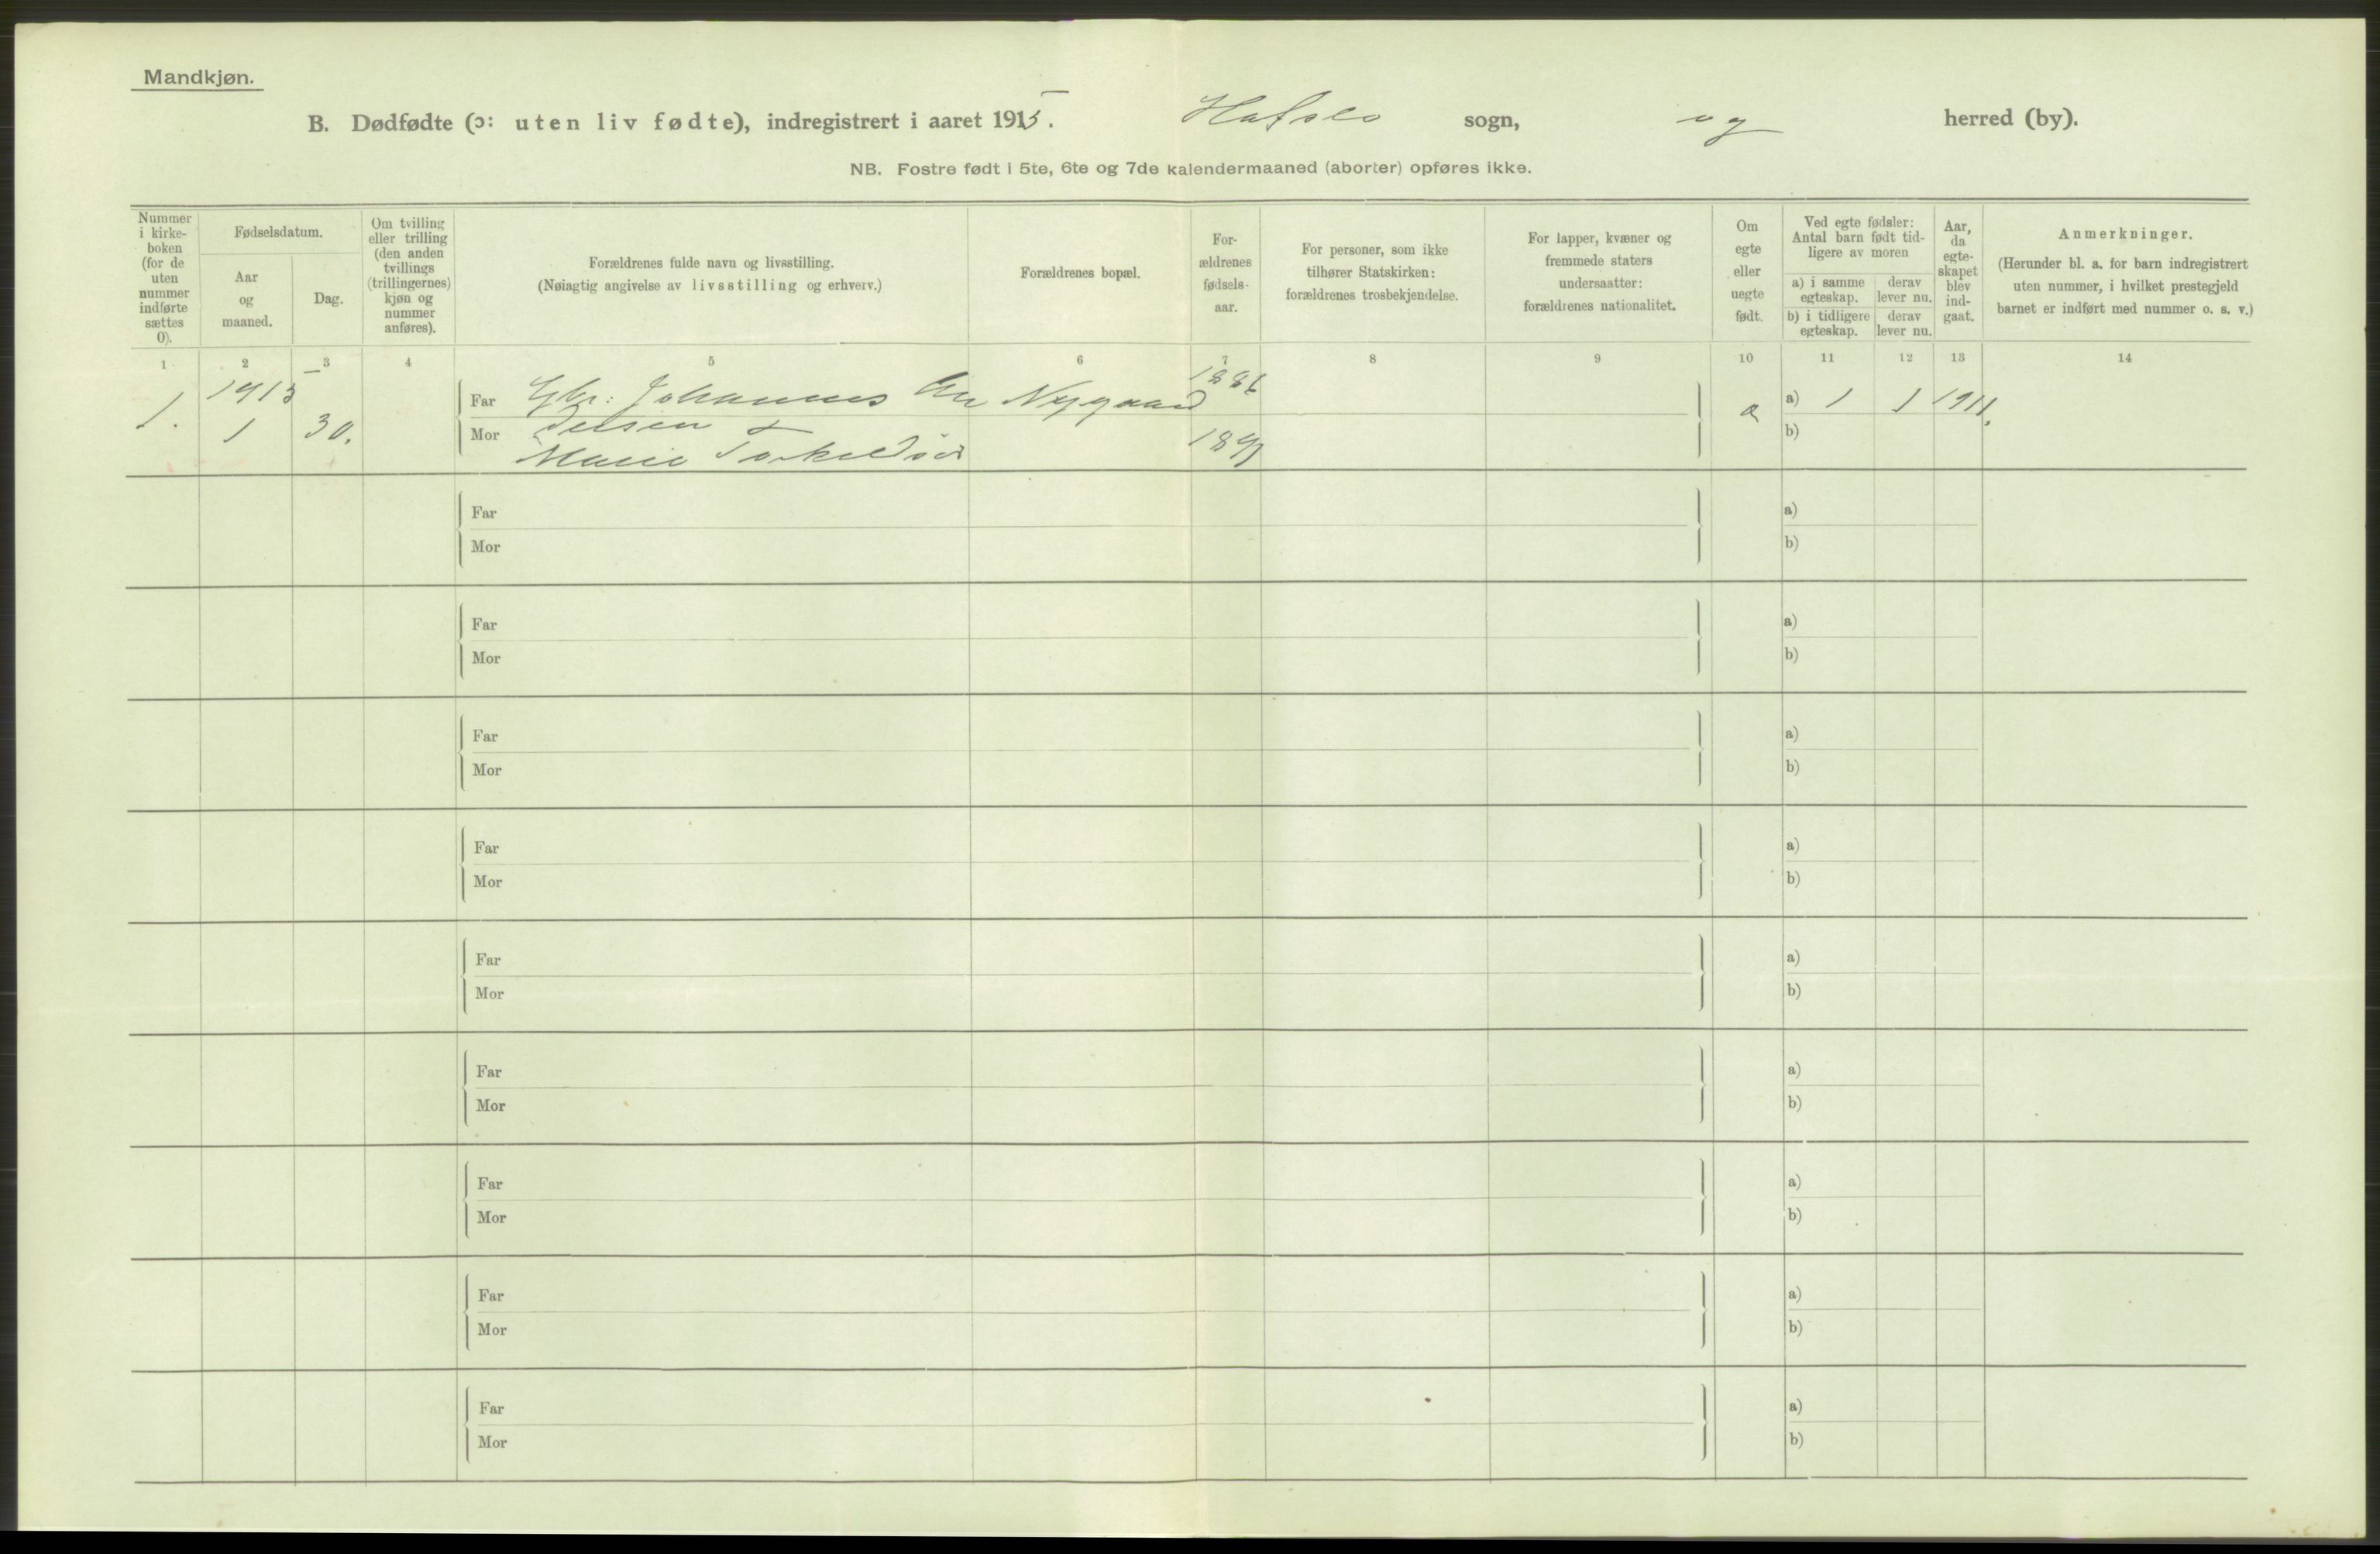 Mandkjøn.
B. Dødfødte (ɔ: uten liv fødte), indregistrert i aaret 1915. Hafslo sogn, og herred (by).
NB. Fostre født i 5te, 6te og 7de kalendermaaned (aborter) opføres ikke.
Nummer i kirke-boken (for de uten nummer indførte sættes 0).
Fødselsdatum.
Aar og maaned.
Dag.
Om tvilling eller trilling (den anden tvillings (trillingernes) kjøn og nummer anføres).
Forældrenes fulde navn og livsstilling.
(Nøiagtig angivelse av livsstilling og erhverv.)
Forældrenes bopæl.
For-ældrenes fødsels-aar.
For personer, som ikke tilhører Statskirken: forældrenes trosbekjendelse.
For lapper, kvæner og fremmede staters undersaatter: forældrenes nationalitet.
Om egte eller uegte født.
Ved egte fødsler: Antal barn født tid-ligere av moren
a) i samme egteskap. derav lever nu.
b) i tidligere egteskap. derav lever nu.
Aar, da egte-skapet blev ind-gaat.
Anmerkninger.
(Herunder bl. a. for barn indregistrert uten nummer, i hvilket prestegjeld barnet er indført med nummer o. s. v.)
1 2 3 4 5 6 7 8 9 10 11 12 13 14
1. 1915 Far Gbr. Johannes An Nygaard 1886 a) 1 1 1911.
1 30. Mor dersen & 1891 b)
Marie
Far a)
Mor b)
Far a)
Mor b)
Far a)
Mor b)
Far a)
Mor b)
Far a)
Mor b)
Far a)
Mor b)
Far a)
Mor b)
Far a)
Mor b)
Far a)
Mor b)